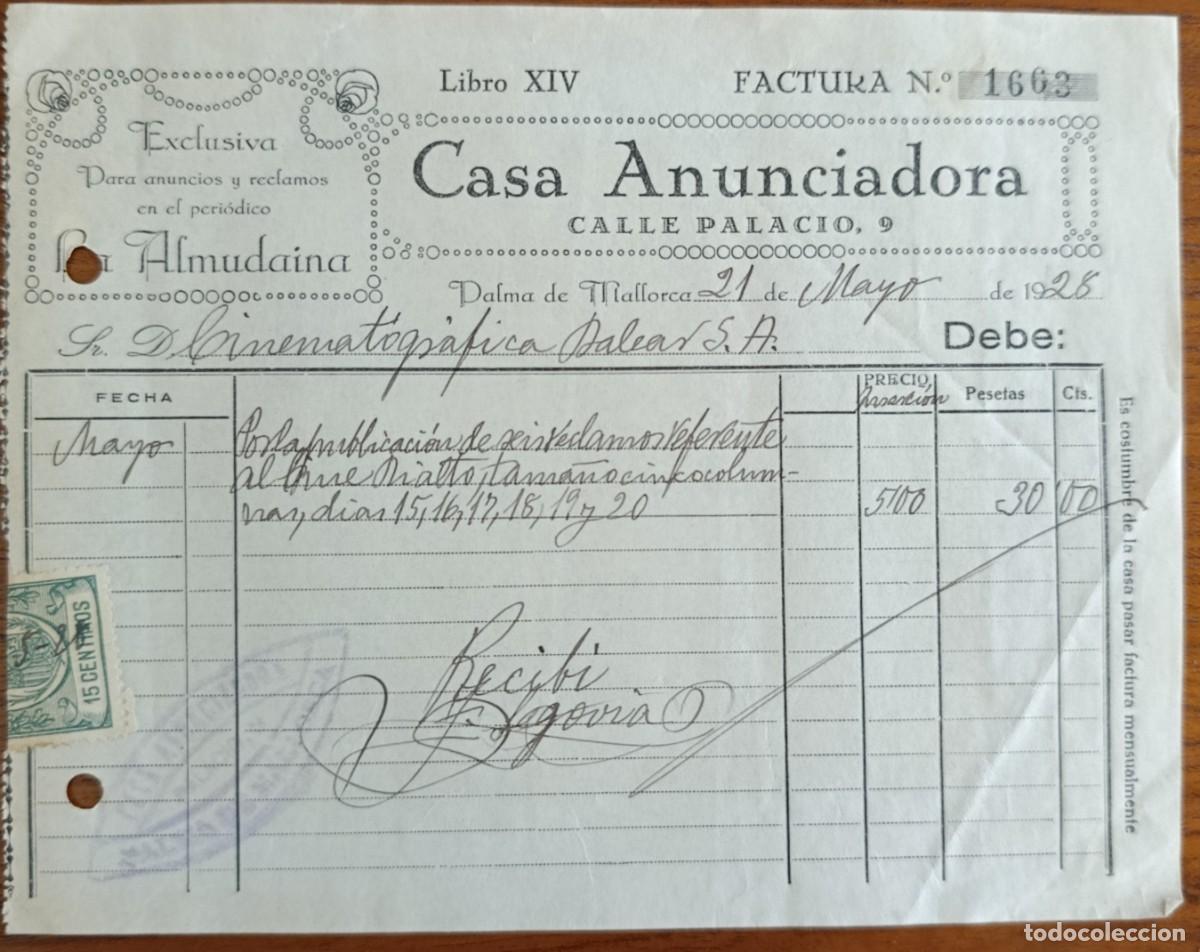 Libro XIV
FACTURA N.º 1663
Exclusiva
Para anuncios y reclamos
en el periódico
La Almudaina
Casa Anunciadora
CALLE PALACIO, 9
Palma de Mallorca 21 de Mayo de 1928
Sr. D. Cinematográfica Balear S. A. Debe:
FECHA PRECIO Inserción Pesetas Cts.
Mayo Por la publicación de seis reclamos referente
al Cine Rialto, tamaño cinco colum-
nas, dias 15, 16, 17, 18, 19 y 20 5'00 30 00
Recibi
F. Segovia
15 CENTIMOS
Es costumbre de la casa pasar factura mensualmente
todocoleccion